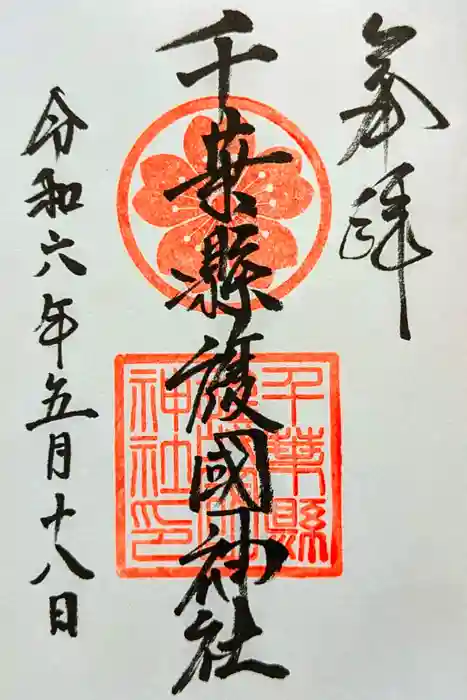 奉拝
千葉縣護國神社
千葉縣
護國
神社印
令和六年五月十八日